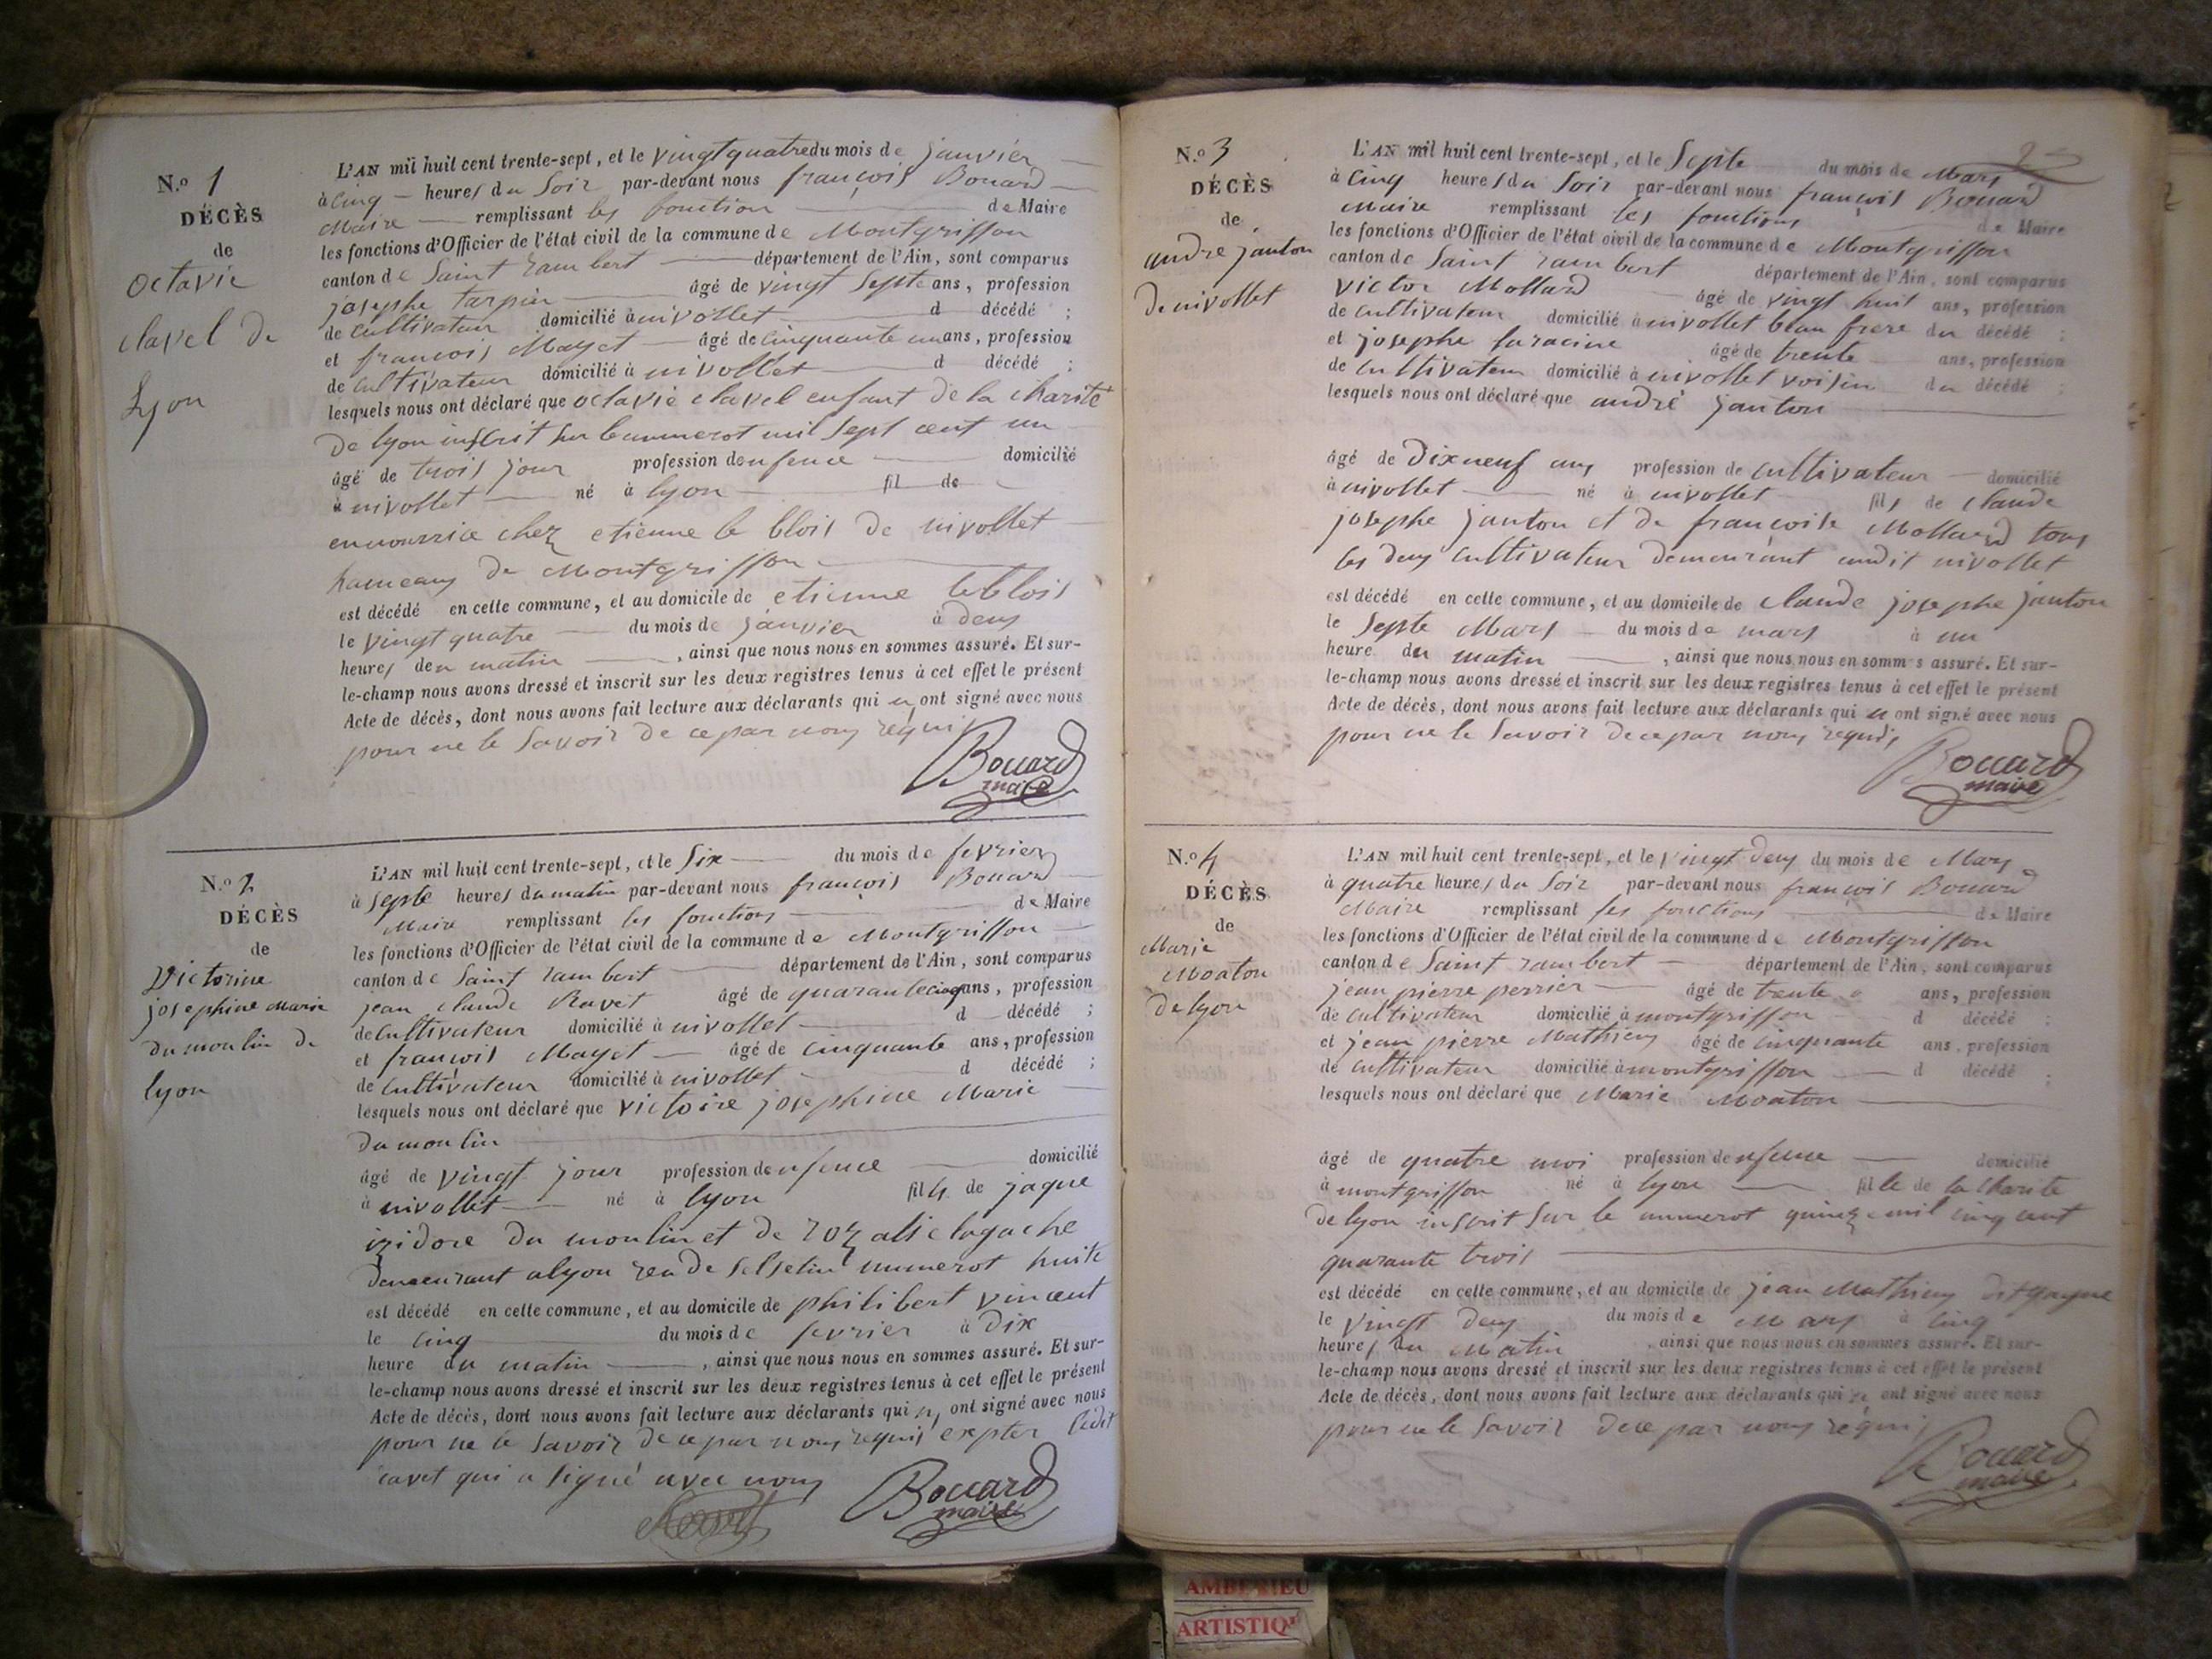 N.o 1
DÉCÈS
de
octavie
clavel de
Lyon
L'AN mil huit cent trente-sept, et le vingt quatre du mois de janvier
à cinq heures du soir par-devant nous françois Bouard
Maire remplissant les fonction de Maire
les fonctions d'Officier de l'état civil de la commune de Montgriffon
canton de Saint rambert département de l'Ain, sont comparus
josephe tarpin âgé de vingt septe ans, profession
de cultivateur domicilié à nivollet d décédé ;
et francois Mayet âgé de cinquante un ans, profession
de cultivateur domicilié à nivollet d décédé ;
lesquels nous ont déclaré que octavie clavel enfant de la charité
de lyon inscrit sur le numerot mil sept cent un
âgé de trois jour profession denfence domicilié
à nivollet né à lyon fil de
ennourrice chez etienne le blois de nivollet
hameaux de Montgriffon
est décédé en cette commune, et au domicile de etienne leblois
le vingt quatre du mois de janvier à deux
heures deu matin , ainsi que nous nous en sommes assuré. Et sur-
le-champ nous avons dressé et inscrit sur les deux registres tenus à cet effet le présent
Acte de décès, dont nous avons fait lecture aux déclarants qui n ont signé avec nous
pour ne le savoir de ce par nous réquis
Bouard
maire
N.o 2
DÉCÈS
de
Victorine
josephine Marie
du moulin de
lyon
L'AN mil huit cent trente-sept, et le Six du mois de fevrier
à septe heures du matin par-devant nous françois Bouard
Maire remplissant les fonctions de Maire
les fonctions d'Officier de l'état civil de la commune de Montgriffon
canton de Saint rambert département de l'Ain, sont comparus
jean claude Ravet âgé de quarante cinq ans, profession
de cultivateur domicilié à nivollet d décédé ;
et françois Mayet âgé de cinquante ans, profession
de cultivateur domicilié à nivollet d décédé ;
lesquels nous ont déclaré que victoire josephine Marie
du moulin
âgé de vingt jour profession denfence domicilié
à nivollet né à lyon fil de jaque
izidore du moulin et de rozalie lagache
demeurant alyon numerot huite
est décédé en cette commune, et au domicile de philibert vincent
le cinq du mois de fevrier à dix
heure du matin , ainsi que nous nous en sommes assuré. Et sur-
le-champ nous avons dressé et inscrit sur les deux registres tenus à cet effet le présent
Acte de décès, dont nous avons fait lecture aux déclarants qui n, ont signé avec nous
pour ne le savoir de ce par nous requis expter ledit
ravet qui a signé avec nous
Bouard
maire
2
N.o 3
DÉCÈS
de
andré janton
de nivollet
L'AN mil huit cent trente-sept, et le Septe du mois de Mars
à cinq heures du soir par-devant nous françois Bouard
Maire remplissant les fonctions de Maire
les fonctions d'Officier de l'état civil de la commune de Montgriffon
canton de Saint rambert département de l'Ain, sont comparus
victor Mollard âgé de vingt huit ans, profession
de cultivateur domicilié à nivollet beau frere du décédé ;
et josephe saracine âgé de trente ans, profession
de cultivateur domicilié à nivollet voisin du décédé ;
lesquels nous ont déclaré que andré janton
âgé de Dix neuf ans profession de cultivateur domicilié
à nivollet né à nivollet fils de claude
josephe janton et de francoise Mollard tous
les deux cultivateur demeurant audit nivollet
est décédé en cette commune, et au domicile de claude josephe janton
le septe Mars du mois de mars à un
heure du matin , ainsi que nous nous en sommes assuré. Et sur-
le-champ nous avons dressé et inscrit sur les deux registres tenus à cet effet le présent
Acte de décès, dont nous avons fait lecture aux déclarants qui n ont signé avec nous
pour ne le savoir de ce par nous requis
Bouard
maire
N.o 4
DÉCÈS
de
Marie
Moaton
de lyon
L'AN mil huit cent trente-sept, et le vingt deux du mois de Mars
à quatre heures du soir par-devant nous françois Bouard
Maire remplissant les fonctions de Maire
les fonctions d'Officier de l'état civil de la commune de Montgriffon
canton de Saint rambert département de l'Ain, sont comparus
jean pierre perrier âgé de trente ans, profession
de cultivateur domicilié à montgriffon d décédé ;
et jean pierre Mathieu âgé de cinquante ans, profession
de cultivateur domicilié à montgriffon d décédé ;
lesquels nous ont déclaré que Marie Moaton
âgé de quatre moi profession denfence domicilié
à montgriffon né à lyon fille de la charite
de lyon inscrit sur le numerot quinze mil cinq cent
quarante trois
est décédé en cette commune, et au domicile de jean Mathieu dit
le vingt deux du mois de Mars à cinq
heures du Matin , ainsi que nous nous en sommes assuré. Et sur-
le-champ nous avons dressé et inscrit sur les deux registres tenus à cet effet le présent
Acte de décès, dont nous avons fait lecture aux déclarants qui n ont signé avec nous
pour ne le savoir de ce par nous réquis
Bouard
maire
AMBERIEU
ARTISTIQU